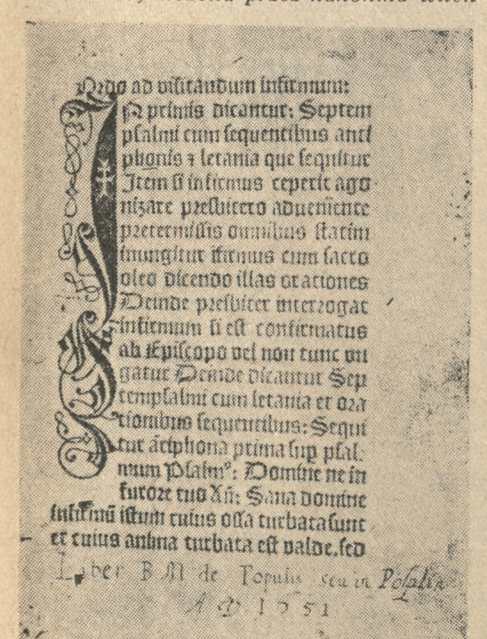 Ordo ad visitandum infirmum:
IN primis dicantur: Septem
psalmi cum sequentibus anti
phonis ⁊ letania que sequitur
Item si infirmus ceperit ago
nizare presbitero adveniente
pretermissis omnibus statim
inungitur ifirmus cum sacro
oleo dicendo illas orationes
Deinde presbiter interrogat
infirmum si est confirmatus
ab Episcopo vel non tunc un
gatur Deinde dicantur Sep
tempsalmi cum letania et ora
tionibus sequentibus: Sequi
tur ātiphona prima sup psal
mum Psalmᵒ: Domine ne in
furore tuo Xn̄: Sana domine
infirmū istum cuius ossa turbata sunt
et cuius anima turbata est valde. sed
Liber B M de Topulis seu in Posalia
A D 1751